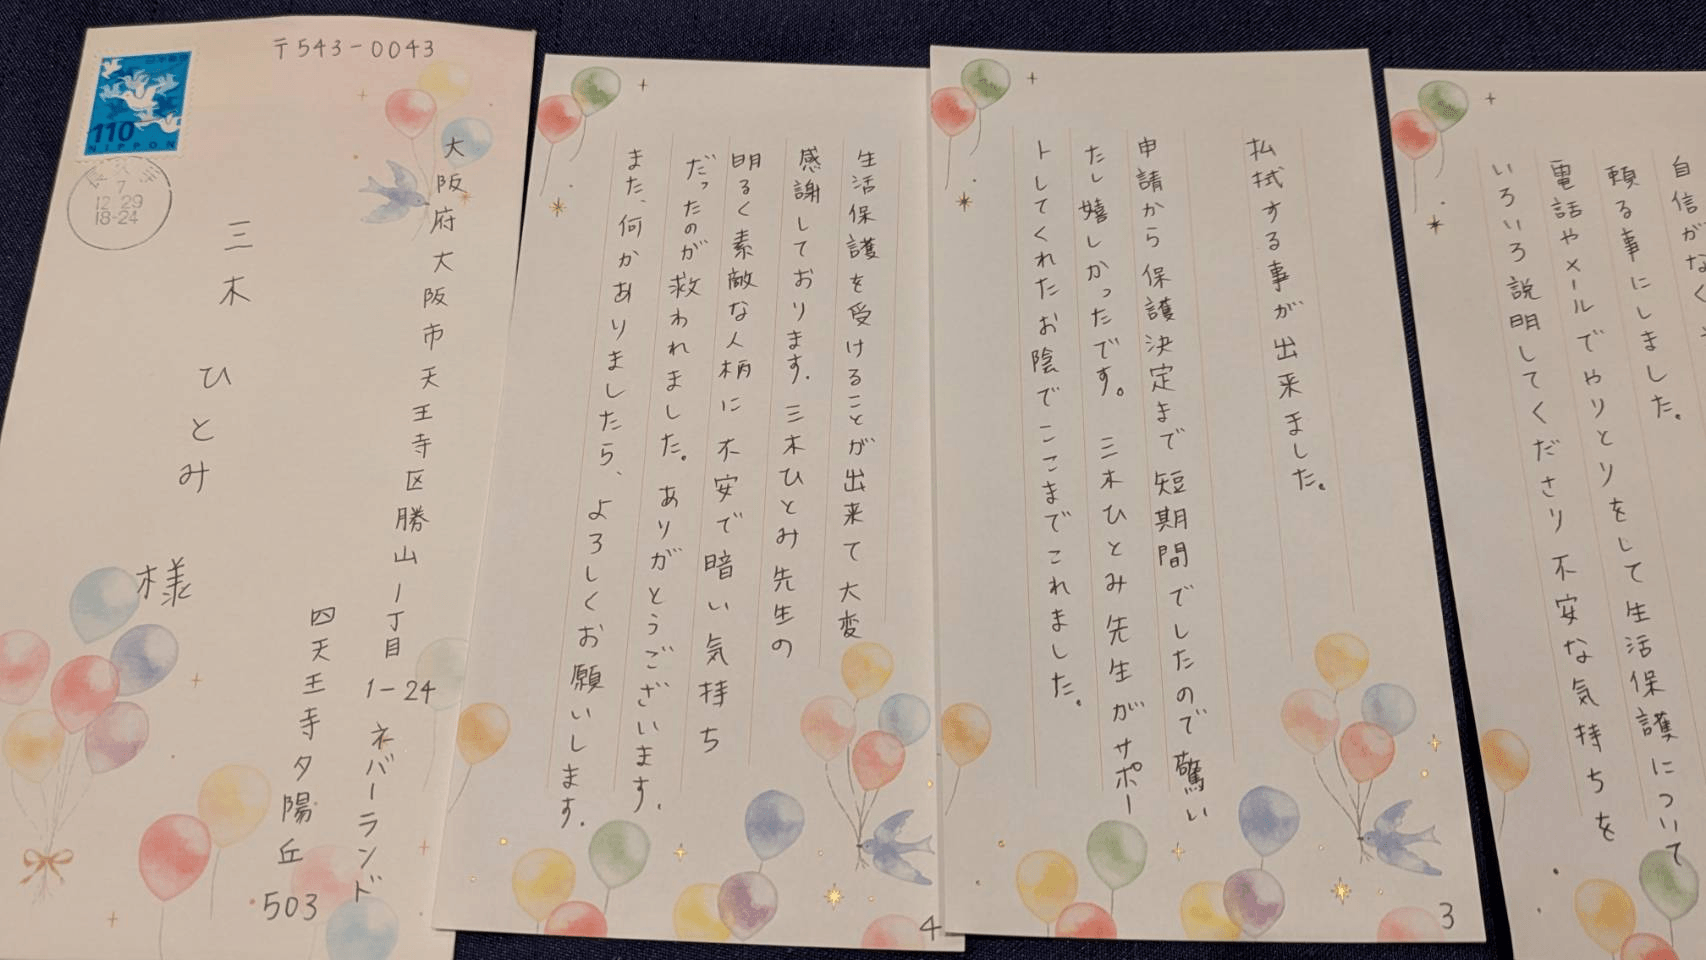 110
NIPPON
7
12 29
18-24
〒543-0043
大阪府大阪市天王寺区勝山1丁目
1-24 ネバーランド
四天王寺夕陽丘
503
三木 ひとみ 様
自信がなく
頼る事にしました。
電話やメールでやりとりをして生活保護について
いろいろ説明してくださり不安な気持ちを
払拭する事が出来ました。
申請から保護決定まで短期間でしたので驚い
たし嬉しかったです。三木ひとみ先生がサポー
トしてくれたお陰でここまでこれました。
3
生活保護を受けることが出来て大変
感謝しております。三木ひとみ先生の
明るく素敵な人柄に不安で暗い気持ち
だったのが救われました。ありがとうございます。
また、何かありましたら、よろしくお願いします。
4